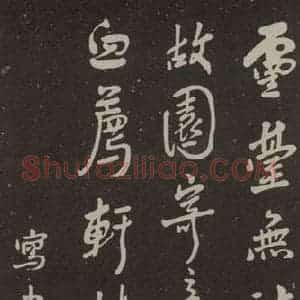 靈臺無
故園寄
血薦軒
寫
Shufaziliao.COM